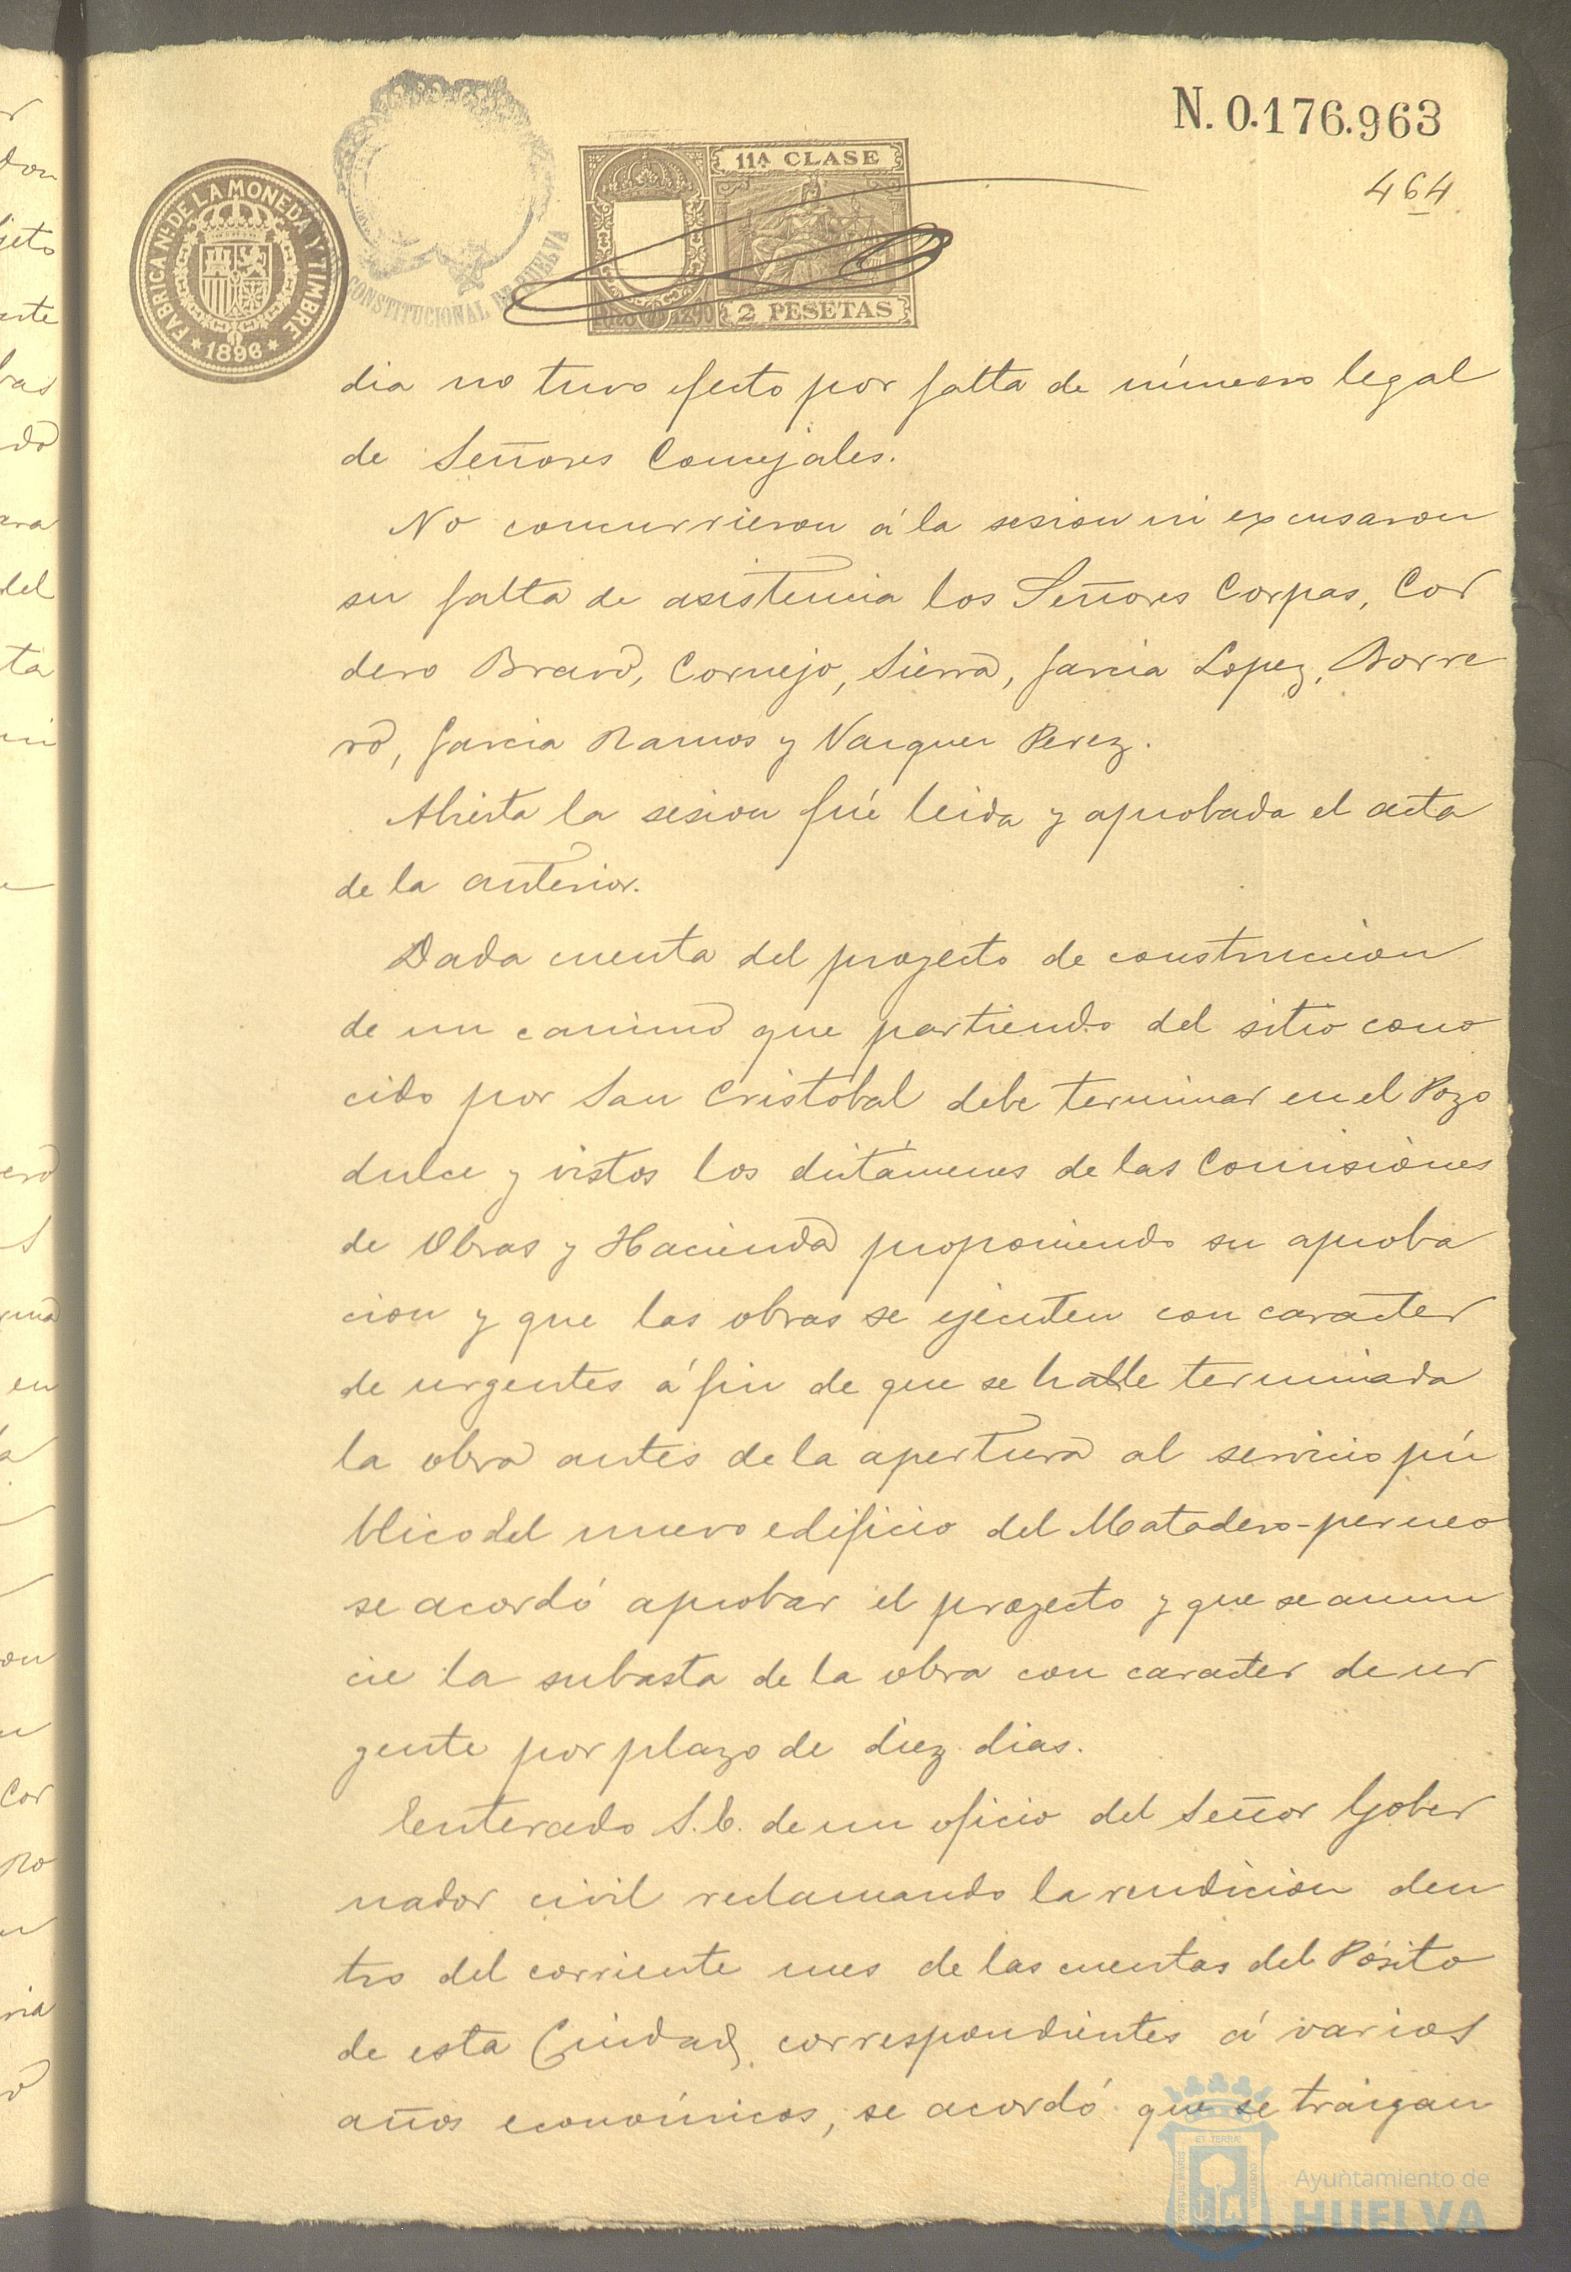 N. 0.176.963
464
FABRICA Nᴸ DE LA MONEDA Y TIMBRE
* 1896 *
CONSTITUCIONAL DE HUELVA
11ª CLASE
2 PESETAS
dia no tuvo efecto por falta de número legal
de Señores Concejales.
No concurrieron á la sesion ni excusaron
su falta de asistencia los Señores Corpas, Cor
dero Bravo, Cornejo, Sierra, Garcia Lopez, Borre
ro, Garcia Ramos y Vazquez Perez.
Abierta la sesion fué leida y aprobada el acta
de la anterior.
Dada cuenta del proyecto de construccion
de un camino que partiendo del sitio cono
cido por San Cristobal debe terminar en el Pozo
dulce y vistos los dictámenes de las Comisiones
de Obras y Hacienda proponiendo su aproba
cion y que las obras se ejecuten con caracter
de urgentes á fin de que se halle terminada
la obra antes de la apertura al servicio pú
blico del nuevo edificio del Matadero-perneo
se acordó aprobar el proyecto y que se anun
cie la subasta de la obra con caracter de ur
gente por plazo de diez dias.
Enterado S.E. de un oficio del Señor Gober
nador civil reclamando la rendicion den
tro del corriente mes de las cuentas del Pósito
de esta Ciudad, correspondientes á varios
años económicos, se acordó que se traigan
Ayuntamiento de
HUELVA